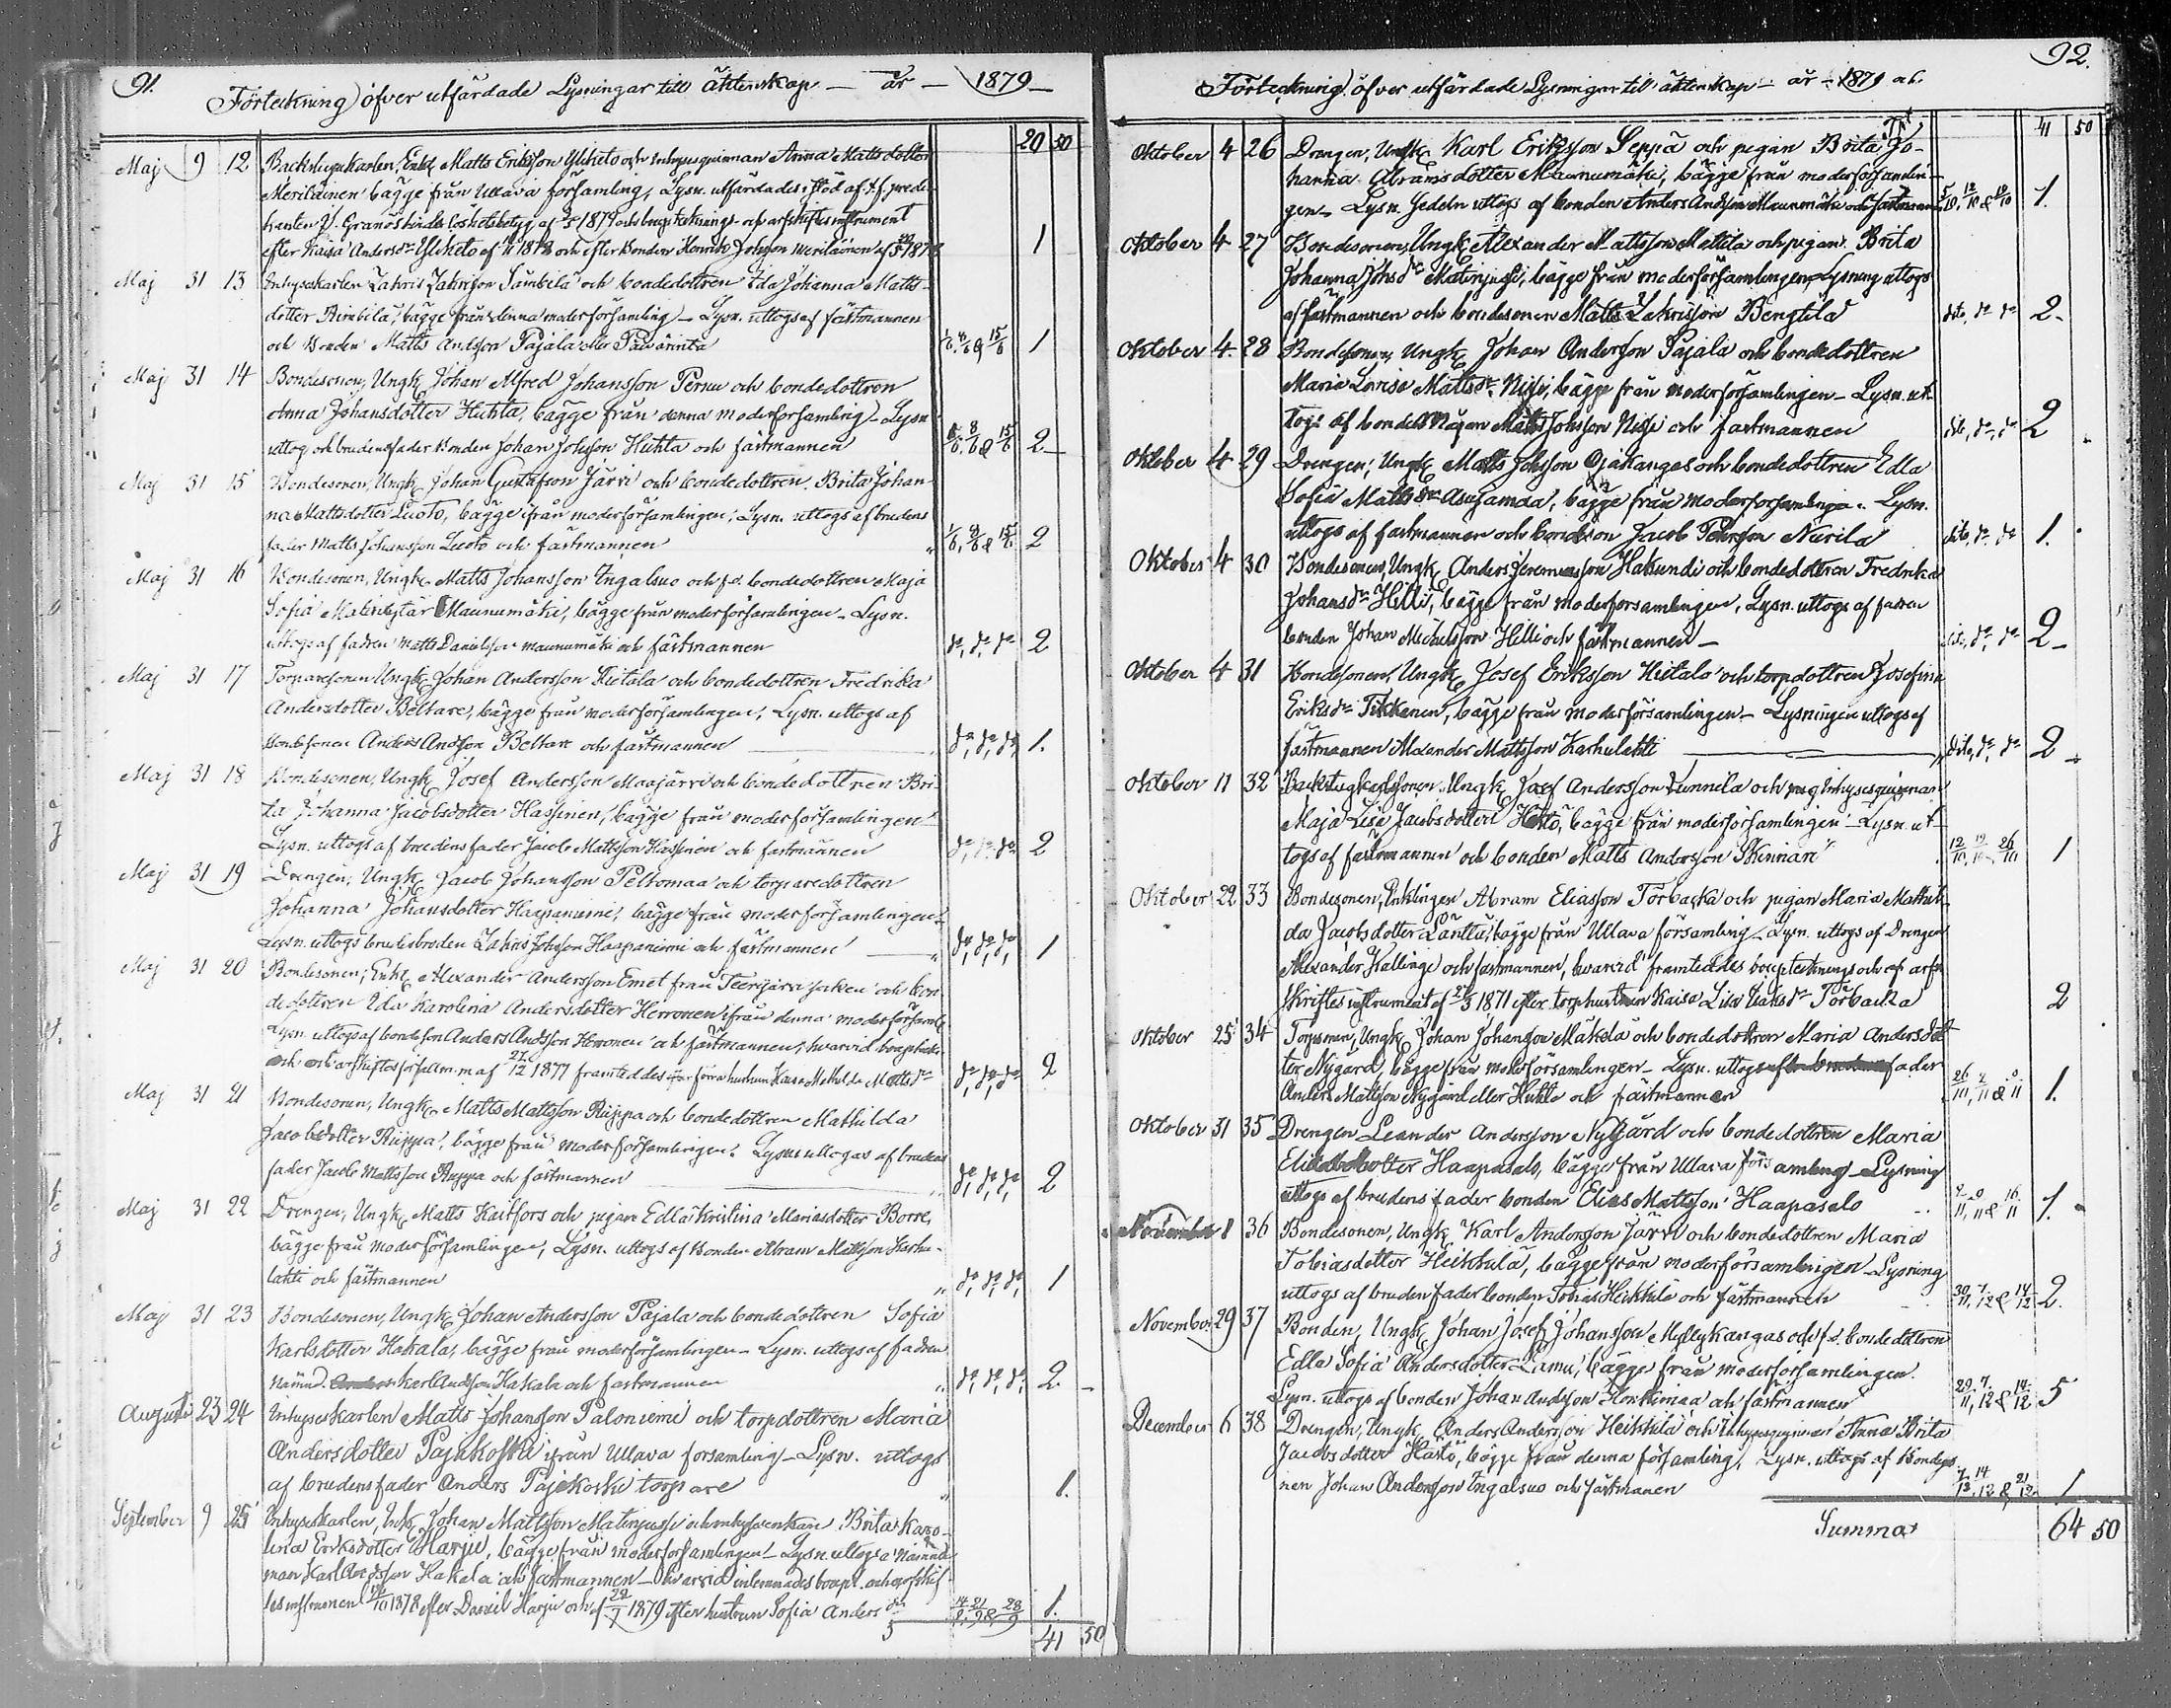 91.
Förteckning öfver utfärdade Lysningar till äktenskap — år — 1879 —
20 50
Maj 9 12 Backstugukarlen, Enkl. Matts Eriksson Yliketo och inhysesquinnan Anna Matts dotter
Meriläinen bägge från Ullava församling, Lysn. utfärdades i stöd af
af 1879 och
efter Kaisa Andersdr Yliketo af 1878 och efter bonden Henrik Johsson Meriläinen af 1
Maj 31 13 Inhyseskarlen Zakris Zakrisson Sambila och bondedottren Ida Johanna Matts-
dotter Rimbilä, bägge från denna moderförsamling — Lysn. uttogs af fästmannen
och bonden Matts Andsson Pajala eller 1/6, 8/6 & 15/6 1
Maj 31 14 Bondesonen, Ungk. Johan Alfred Johansson Pernu och bondedottren
Anna Johansdotter Huhta, bägge från denna moderförsamling — Lysn.
uttog och brudens fader bonden Johan Johsson Huhta och fästmannen 1/6, 8/6 & 15/6 2 —
Maj 31 15 Bondesonen, Ungk. Johan Gustafsson Järvi och bondedottren Brita Johan-
na Mattsdotter Luoto, bägge från moderförsamlingen; Lysn. uttogs af brudens
fader Matts Johansson Luoto och fästmannen " 1/6, 8/6 & 15/6 2
Maj 31 16 Bondesonen, Ungk. Matts Johansson Ingalsuo och f.d. bondedottren Maja
Sofia Matintytär Maunumäki, bägge från moderförsamlingen — Lysn.
uttogs af fadren Matts Danielsson Maunumäki och fästmannen do, do, do 2
Maj 31 17 Torparesonen Ungk. Johan Andersson Hietala och bondedottren Fredrika
Andersdotter Beltare, bägge från moderförsamlingen; Lysn. uttogs af
bondesonen Anders Andsson Beltare och fästmannen — " do, do, do, 1.
Maj 31 18 Bondesonen, Ungk. Josef Andersson Maajärvi och bondedottren Bri-
ta Johanna Jacobsdotter Hassinen, bägge från moderförsamlingen —
Lysn. uttogs af brudens fader Jacob Mattsson Hassinen och fästmannen do, do, do 2
Maj 31 19 Drengen, Ungk. Jacob Johansson Peltomaa och torparedottren
Johanna Johansdotter Haapaniemi, bägge från moderförsamlingen —
Lysn. uttogs brudesbroden Zakris Johsson Haapaniemi och fästmannen — " do, do, do, 1
Maj 31 20 Bondesonen, Enkl. Alexander Andersson Emet från Teerijärvi socken och bon-
dedottren Ida Karolina Andersdotter Herronen från denna moderförsaml.
Lysn. uttogs af bondeson Anders Andsson Herronen och fästmannen, hvarvid
och 27/12 1877 framteddes förra hustrun Kaisa Mathilda Mattsdr do, do, do 2
Maj 31 21 Bondesonen, Ungk. Matts Mattsson Riippa och bondedottren Mathilda
Jacobsdotter Riippa, bägge från moderförsamlingen. Lysn. uttogs af brudens
fader Jacob Mattsson Riippa och fästmannen — " do, do, do, 2
Maj 31 22 Drengen, Ungk. Matts Kaitfors och pigan Edla Kristina Mariasdotter Borre,
bägge från moderförsamlingen, Lysn. uttogs af bonden Abram Mattsson Karhu-
lahti och fästmannen " do, do, do, 1
Maj 31 23 Bondesonen, Ungk. Johan Andersson Pajala och bondedottren Sofia
Karlsdotter Hakala, bägge från moderförsamlingen — Lysn. uttogs af fadren
nämnd. Karl Andsson Hakala och fästmannen " do, do, do, 2. —
Augusti 23 24 Inhyseskarlen Matts Johansson Paloniemi och torpdottren Maria
Andersdotter Pajukoski från Ullava församling — Lysn. uttogs
af brudens fader Anders Pajukoski torpare " 1.
September 9 25 Inhyseskarlen, Enkl. Johan Mattsson Matinjussi och inhysesenkan Brita Karo-
lina Eriksdotter Harju, bägge från moderförsamlingen — Lysn. uttogs a Nämnde-
man Karl Andsson Hakala och fästmannen — hvarvid inlemnades boupt. och arfskif-
tesinstrumen /10 1878 efter Daniel Harju och af 22/7 1879 efter hustrun Sofia Anders dr 14/9, 21/9 & 28/9 1.
5 41 50
92.
Förteckning öfver utfärdade Lysningar till äktenskap — år — 1879 ab.
Trt. 41 50
Oktober 4 26 Drengen, Ungk. Karl Eriksson Seppä och pigan Brita Jo-
hanna Abramsdotter Maunumäki, bägge från moderförsamlin-
gen — Lysn. sedeln uttogs af bonden Anders Andsson Maunumäki och fästmannen 5/10, 12/10 & 19/10 1.
Oktober 4 27 Bondesonen, Ungk. Alexander Mattsson Mattila och pigan Brita
Johanna Johsdr Matinjussi, bägge från moderförsamlingen — Lysning uttogs
af fästmannen och bondesonen Matts Zakrisson Bengtila dito, do do 2.
Oktober 4 28 Bondesonen, Ungk. Johan Andersson Pajala och bondedottren
Maria Lovisa Mattsdr Nissi, bägge från moderförsamlingen — Lysn. ut-
togs af bonden Matts Johsson Nissi och fästmannen dito, do, do 2
Oktober 4 29 Drengen, Ungk. Matts Johsson Ojakangas och bondedottren Edla
Sofia Mattsdr Asujamaa, bägge från moderförsamlingen. Lysn.
uttogs af fästmannen och bondeson Jacob Nurila dito, do do 1.
Oktober 4 30 Bondesonen, Ungk. Anders Jeremiasson Hakundi och bondedottren Fredrika
Johansdr Hilli, bägge från moderförsamlingen, Lysn. uttogs af fadren
bonden Johan Michelsson Hilli och fästmannen — dito, do, do 2 —
Oktober 4 31 Bondesonen, Ungk. Josef Eriksson Hietala och torpdottren Josefina
Eriksdr Tikkanen, bägge från moderförsamlingen — Lysningen uttogs af
fästmannen Alexander Mattsson Karhulahti — " dito, do, do 2 —
Oktober 11 32 Backstugkarlsonen Ungk. Josef Andersson Tunnila och inhysesquinnan
Maja Lisa Jacobsdotter Hästö, bägge från moderförsamlingen — Lysn. ut-
togs af fästmannen och bonden Matts Andersson 12/10, 19/10, 26/10 1
Oktober 22 33 Bondesonen, Enklingen Abram Eliasson Torbacka och pigan Maria Mathil-
da Jacobsdotter Länttä, bägge från Ullava församling — Lysn. uttogs af Drengen
Alexander Kallinge och fästmannen, hvarvid framteddes boupteckning och af arf-
skriftes instrument af 1871 efter torphustrun Kaisa Lisa Isaksdr Torbacka 2
Oktober 25 34 Torpsonen, Ungk. Johan Johansson Mäkelä och bondedottren Maria Andersdot-
ter Nygård, bägge från moderförsamlingen — Lysn. uttogs fader
Anders Mattsson Nygård eller Huhta och fästmannen 26/10, 2/11 & 9/11 1.
Oktober 31 35 Drengen Leander Andersson Nygård och bondedottren Maria
Eliedotter Haapasalo, bägge från Ullava församling — Lysning
uttogs af brudens fader bonden Elias Mattsson Haapasalo 2/11, 9/11 & 16/11 1.
November 8 36 Bondesonen, Ungk. Karl Andersson Järvi och bondedottren Maria
Tobiasdotter Heikkilä, bägge från moderförsamlingen — Lysning
uttogs af bruden fader bonden Tobias Heikkilä och fästmannen 30/11, 7/12 & 14/12 2.
November 29 37 Bonden, Ungk. Johan Josef Johansson Myllykangas och f.d. bondedottren
Edla Sofia Andersdotter Lamu, bägge från moderförsamlingen.
Lysn. uttogs af bonden Johan Andsson Honkimaa och fästmannen 30/11, 7/12 & 14/12 5
December 6 38 Drengen, Ungk. Anders Andersson Heikkilä och inhysesquinnan Anna Brita
Jacobsdotter Hästö, bägge från denna församling. Lysn. uttogs af Bondeso-
nen Johan Andersson Ingalsuo och fästmanen 7/12, 14/12 & 21/12 1
Summa 64 50